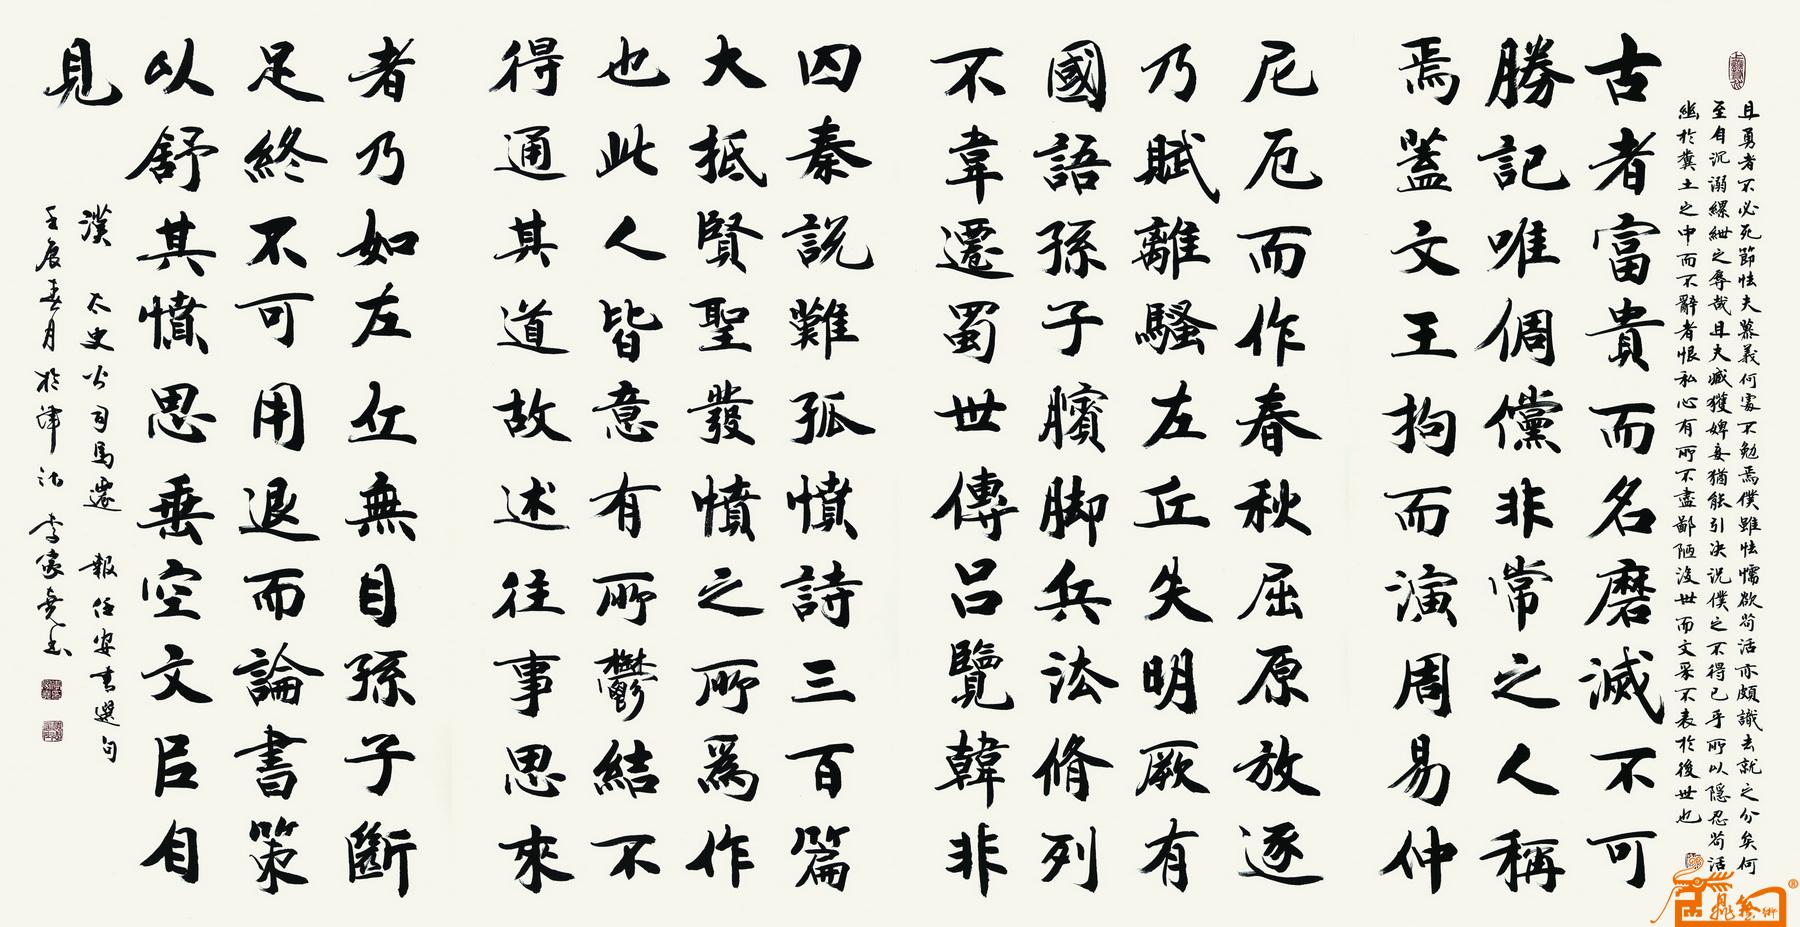 且勇者不必死節怯夫慕義何處不勉焉僕雖怯懦欲苟活亦頗識去就之分矣何
至自沉溺縲紲之辱哉且夫臧獲婢妾猶能引決況僕之不得已乎所以隱忍苟活
幽於糞土之中而不辭者恨私心有所不盡鄙陋沒世而文采不表於後世也
古者富貴而名磨滅不可
勝記唯倜儻非常之人稱
焉蓋文王拘而演周易仲
尼厄而作春秋屈原放逐
乃賦離騷左丘失明厥有
國語孫子臏脚兵法脩列
不韋遷蜀世傳呂覽韓非
囚秦說難孤憤詩三百篇
大抵賢聖發憤之所爲作
也此人皆意有所鬱結不
得通其道故述往事思來
者乃如左丘無目孫子斷
足終不可用退而論書策
以舒其憤思垂空文以自
見
漢 太史公司馬遷 報任安書選句
壬辰春月於津沽 李家堯書